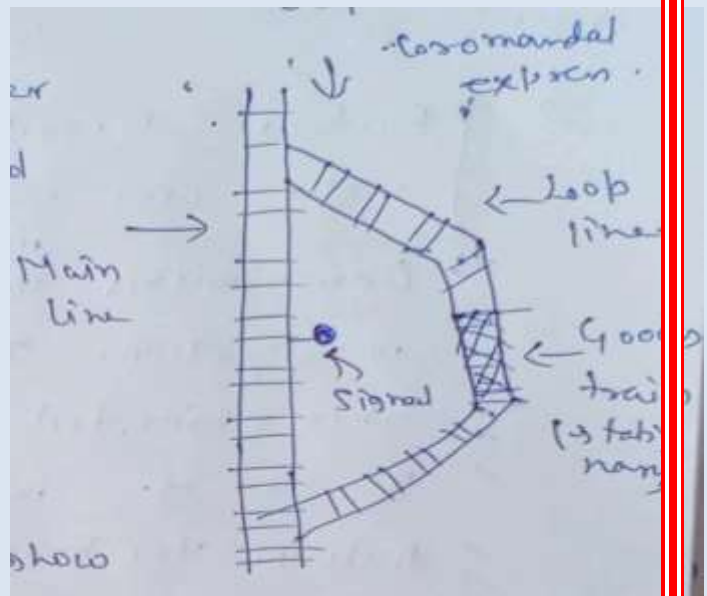 Coromandal
expren.
Loop
line
Main
line
Signal
Goods
train
(stati
nary
show